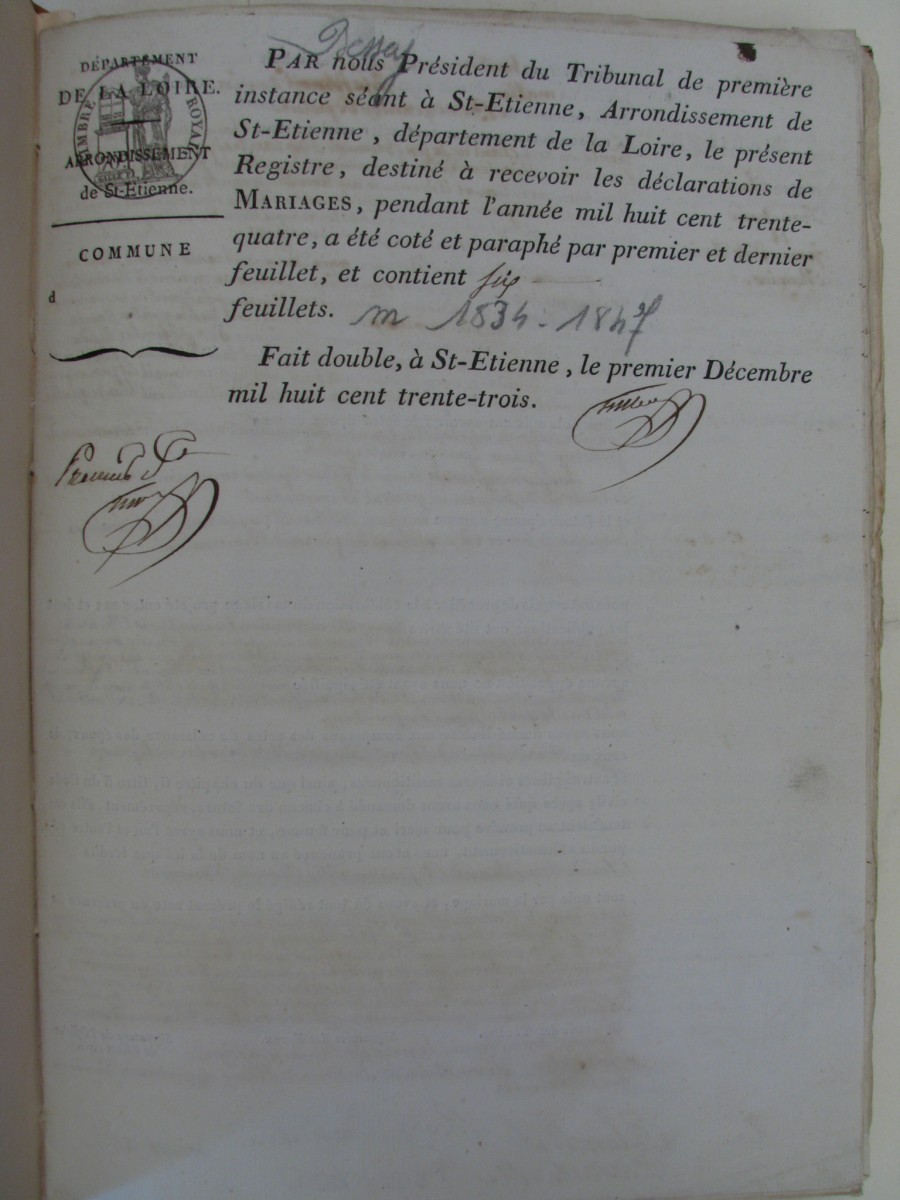 Bessey
DÉPARTEMENT
DE LA LOIRE.
TIMBRE ROYAL
ARRONDISSEMENT
de St-Etienne.
COMMUNE
d
PAR nous Président du Tribunal de première
instance séant à St-Etienne, Arrondissement de
St-Etienne, département de la Loire, le présent
Registre, destiné à recevoir les déclarations de
MARIAGES, pendant l'année mil huit cent trente-
quatre, a été coté et paraphé par premier et dernier
feuillet, et contient six
feuillets.
m 1834-1847
Fait double, à St-Etienne, le premier Décembre
mil huit cent trente-trois.